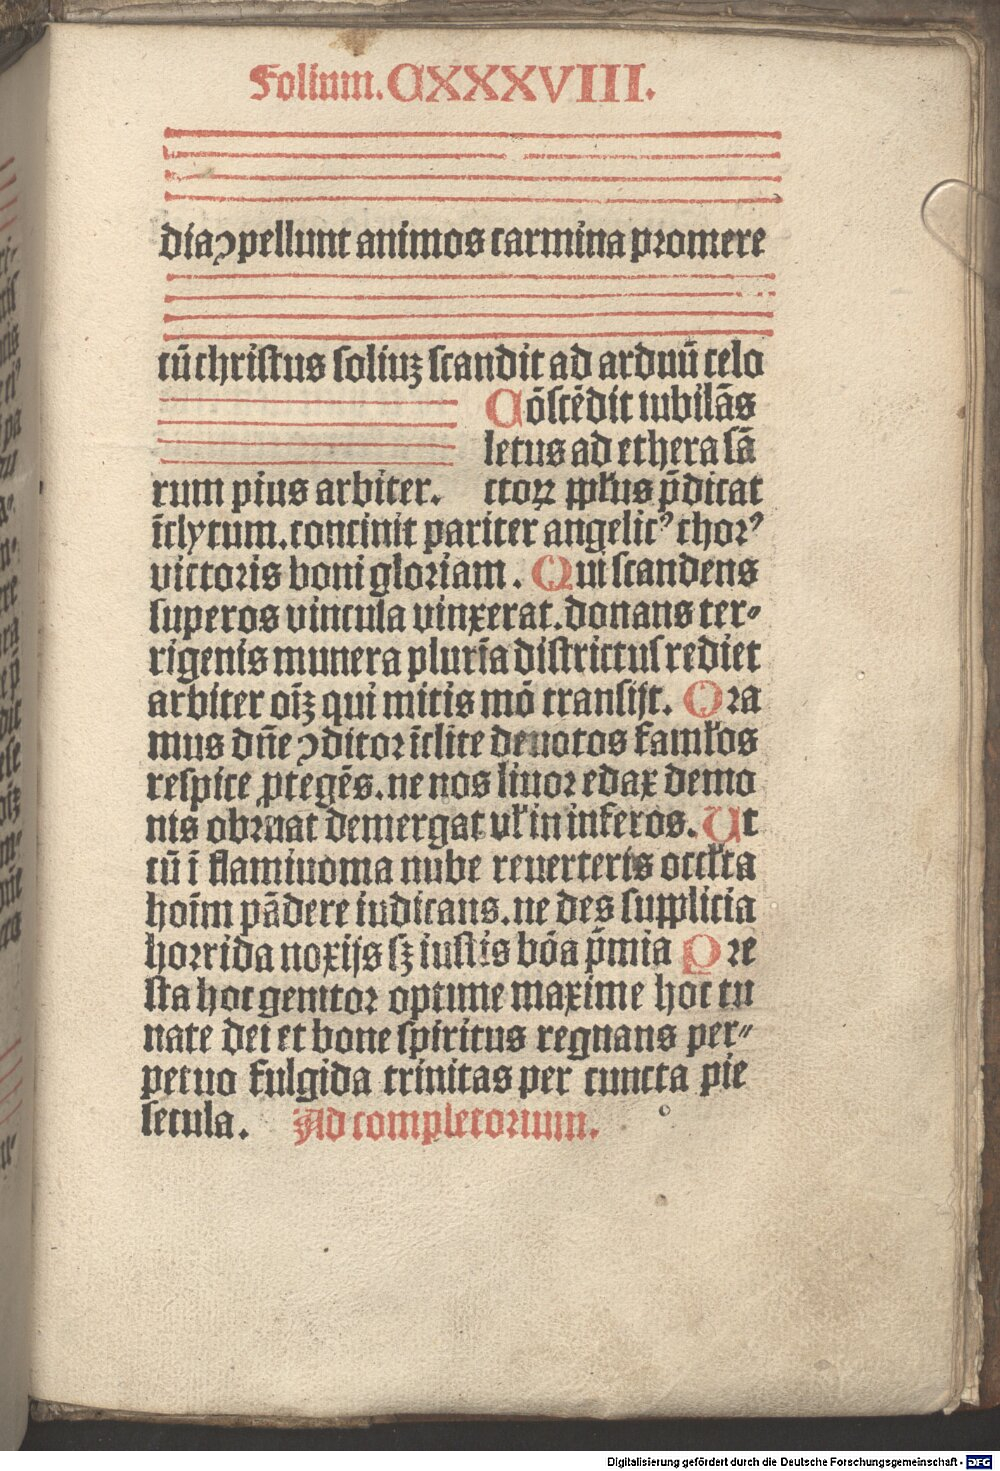 Folium. CXXXVIII.
diaↄpellunt animos carmina promere
cū christus soliuꝫ scandit ad arduū celo
rum pius arbiter. Cōscēdit iubilās
letus ad ethera sā
ctoꝝ ppl's p̄dicat
īclytum. concinit pariter angelicꝰ chorꝰ
victoris boni gloriam. Qui scandens
superos vincula vinxerat. donans ter⸗
rigenis munera plurīa districtus rediet
arbiter oīꝫ qui mitis mō transijt. Ora
mus dn̄e ↄditor īclite deuotos famł'os
respice ꝓtegēs. ne nos liuor edax demo
nis obruat demergat vł in inferos. Ut
cū ī flamiuoma nube reuerteris occl'ta
hoīm pādere iudicans. ne des supplicia
horrida noxijs sꝫ iustis bōa p̄mia Pre
sta hoc genitor optime maxime hoc tu
nate dei et bone spiritus regnans per⸗
petuo fulgida trinitas per cuncta pie
secula. Ad completorium.
Digitalisierung gefördert durch die Deutsche Forschungsgemeinschaft - DFG